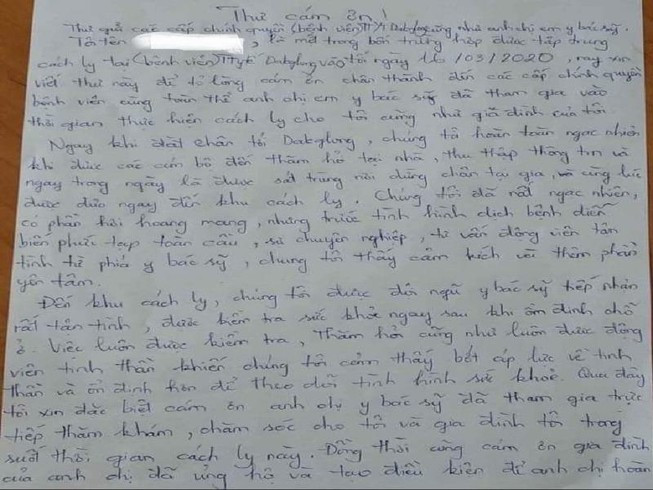 Thư cám ơn!
Thư quá các cấp chính quyền (bệnh viện TTYT Dakglong cũng như anh chị em y bác sỹ.
Tôi tên , là một trong bốn trường hợp được tập trung
cách ly tại (bệnh viện) TTYT Dakglong vào tối ngày 16/03/2020, nay xin
viết thư này để tỏ lòng cám ơn chân thành đến các cấp chính quyền
bệnh viện cùng toàn thể anh chị em y bác sỹ đã tham gia vào
thời gian thực hiện cách ly cho tôi cũng như gia đình của tôi.
Ngay khi đặt chân tới Dakglong, chúng tôi hoàn toàn ngạc nhiên
khi được các cán bộ đến thăm hỏi tại nhà, thu thập thông tin và
ngay trong ngày là được sát trùng nơi dừng chân tại gia, và cùng lúc
được đưa ngay đến khu cách ly. Chúng tôi đã rất ngạc nhiên,
có phần hơi hoang mang, nhưng trước tình hình dịch bệnh diễn
biến phức tạp toàn cầu, sự chuyên nghiệp, tư vấn động viên tận
tình từ phía y bác sỹ, chúng tôi thấy cảm kích với thêm phần
yên tâm.
Đến khu cách ly, chúng tôi được đội ngũ y bác sỹ tiếp nhận
rất tận tình, được kiểm tra sức khỏe ngay sau khi ổn định chỗ
ở. Việc luôn được kiểm tra, Thăm hỏi cũng như luôn được động
viên tinh thần khiến chúng tôi cảm thấy bớt áp lực về tinh
thần và ổn định hơn để theo dõi tình hình sức khỏe. Qua đây
tôi xin đặc biệt cám ơn anh chị y bác sỹ đã tham gia trực
tiếp thăm khám, chăm sóc cho tôi và gia đình tôi trong
suốt thời gian cách ly này. Đồng thời cũng cám ơn gia đình
của anh chị đã ủng hộ và tạo điều kiện để anh chị hoàn